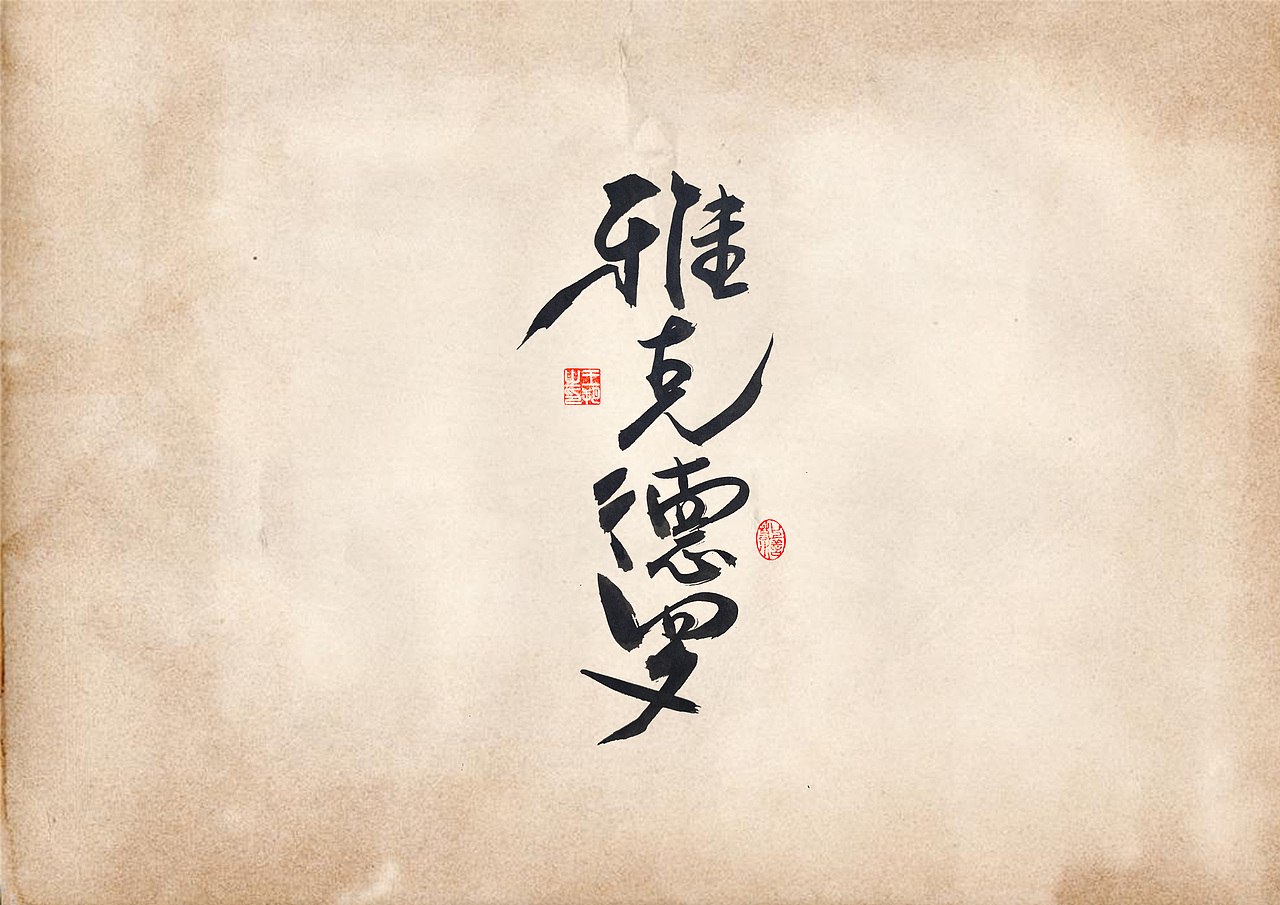 雅
克
德
罗